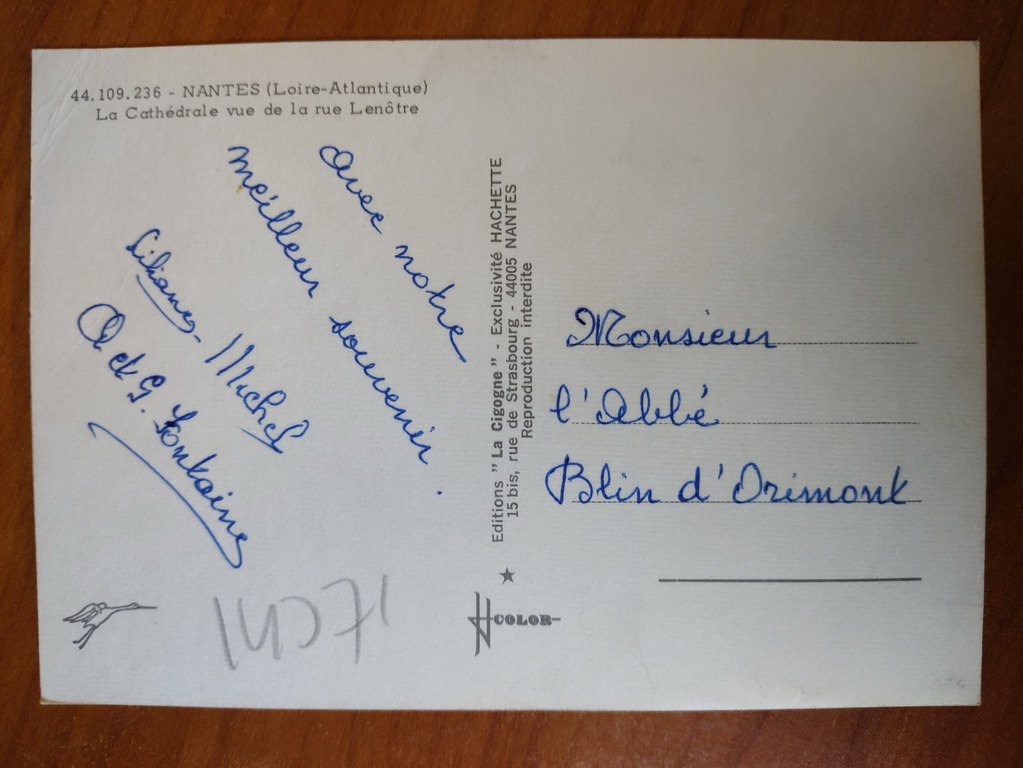 44.109.236 - NANTES (Loire-Atlantique)
La Cathédrale vue de la rue Lenôtre
avec notre
meilleur souvenir.
Liliane - Michel
A et G. Fontaine
Editions "La Cigogne" - Exclusivité HACHETTE
15 bis, rue de Strasbourg - 44005 NANTES
Reproduction interdite
Monsieur
l'Abbé
Blin d'Orimont
COLOR